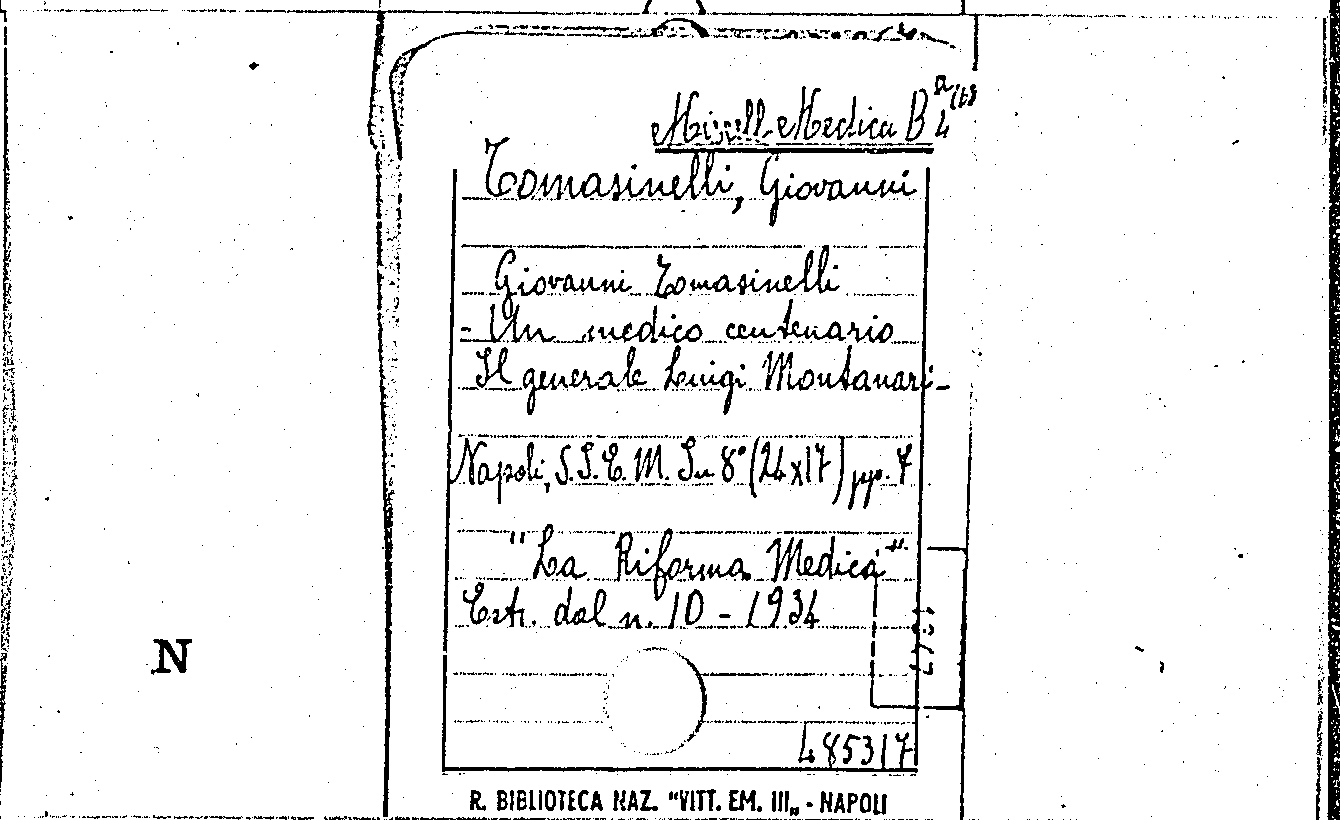 Miscell. Medica B
Tomasinelli, Giovanni
Giovanni Tomasinelli
- Un medico centenario
Il generale Luigi Montanari -
Napoli, S.I.E.M. In 8° (24x17) pp. 7
"La Riforma Medica"
Estr. dal n. 10 - 1934
N
485317
R. BIBLIOTECA NAZ. "VITT. EM. III„ - NAPOLI